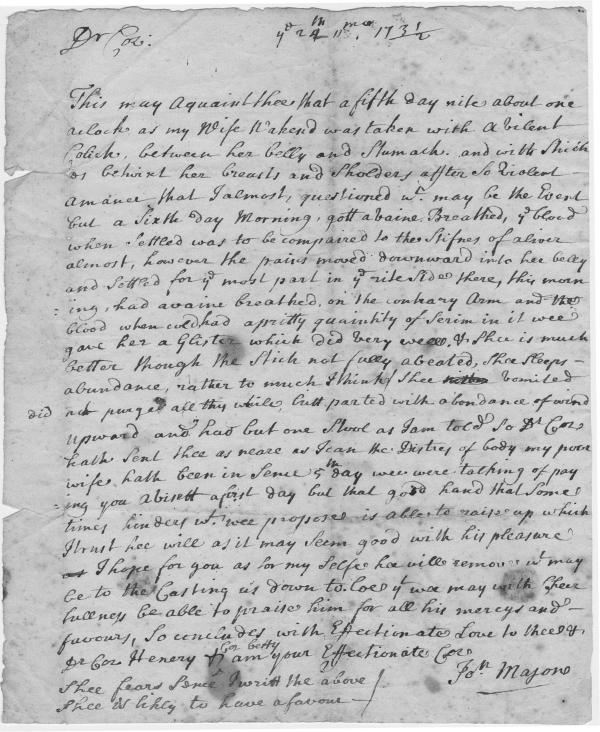 Dr Coz: yᵉ 24ᵗʰ 11ᵐᵒ. 173½
This may aquaint thee that a fifth day nite about one
aclock as my Wife Wakend was taken with a vilent
Colick, between her belly and Stumach and with Stich
es betwixt her breasts and Sholders affter So Violent
a maner that I almost questioned wᵗ. may be the Event
but a Sixth day Morning, gott a vaine Breathed, yᵉ blood
when Settled was to be compaired to the Stifnes of a liver
almost, however the pains moved downward into her belly
and Settled for yᵉ most part in yᵉ rite Side there, this morn
=ing, had a vaine breathed, on the contrary Arm and the
blood when cold had a pritty quantity of Serim in it wee
gave her a Glister which did very well, & Shee is much
better though the Stich not fully abeated, Shee Sleeps
abundance, rather to much I think Shee vomited
did purge all this while, butt parted with abondance of wind
upward and had but one Stool as I am told So Dr Coz
hath Sent thee as neare as I can the Distres of body my poor
wife hath been in Sence 5ᵗʰ day wee were talking of pay
=ing you a visett a first day but that good hand that Some
times hinders wᵗ. wee propose is able to raise up which
I trust hee will as it may Seem good with his pleasure
I hope for you as for my Selfe hee will remove wᵗ may
be to the Casting us down to Soe yᵗ wee may with Cheer
fullness be able to praise him for all his mercys and
favours, So concludes with Effectionate Love to thee &
Dr Coz Henery & Coz betty I am your Effectionate Coz
Joⁿ Mason
Shee fears Sence I writt the above
Shee is likly to have a favour